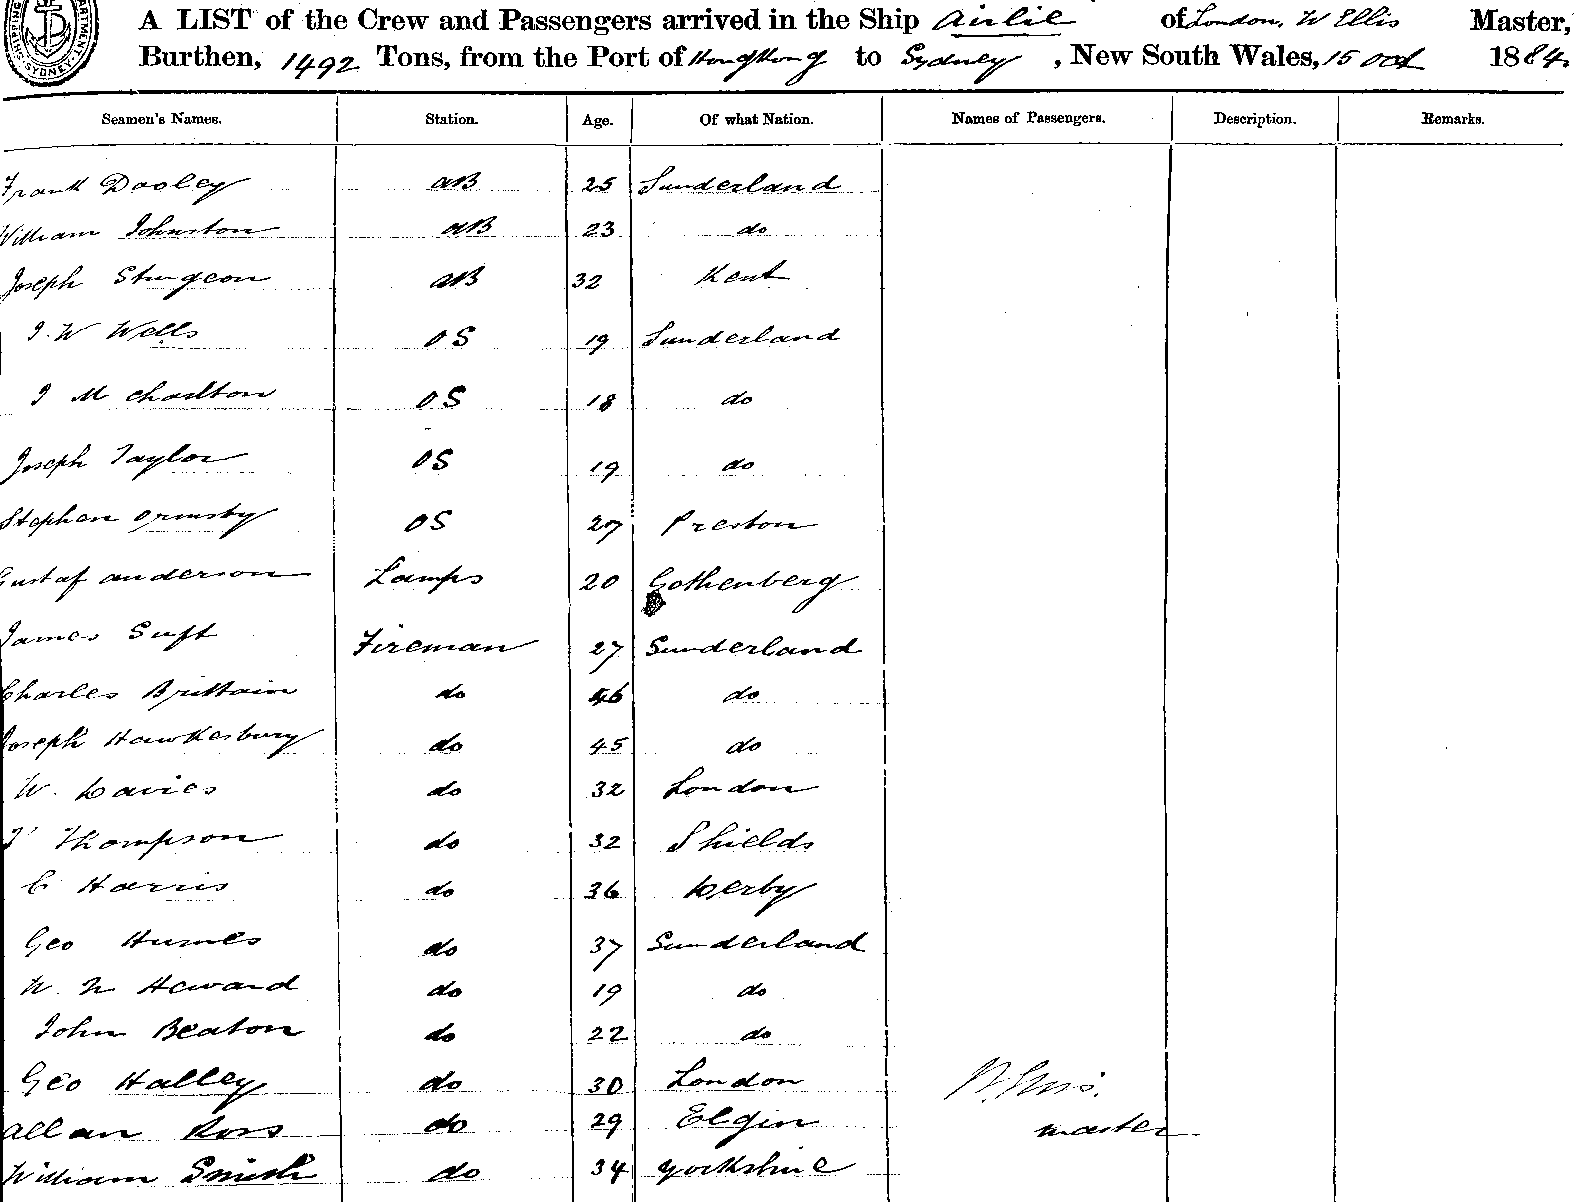 A LIST of the Crew and Passengers arrived in the Ship Airlie of London, W Ellis Master,
Burthen, 1492 Tons, from the Port of HongKong to Sydney, New South Wales, 15 Oct 1884.
Seamen's Names. Station. Age. Of what Nation. Names of Passengers. Description. Remarks.
Frank Dooley aB 25 Sunderland
William Johnston aB 23 do
Joseph Sturgeon aB 32 Kent
J. W Wells OS 19 Sunderland
J M Charlton OS 18 do
Joseph Taylor OS 19 do
Stephen Ormsby OS 27 Preston
Gustaf anderson Lamps 20 Gothenberg
James Suft Fireman 27 Sunderland
Charles Brittain do 46 do
Joseph Hawkesbury do 45 do
W. Davies do 32 London
J Thompson do 32 Shields
C Harris do 36 Derby
Geo Humes do 37 Sunderland
W. N Heward do 19 do
John Beaton do 22 do
Geo Halley do 30 London W. Ellis.
allan Ross do 29 Elgin master
William Smith do 34 Yorkshire